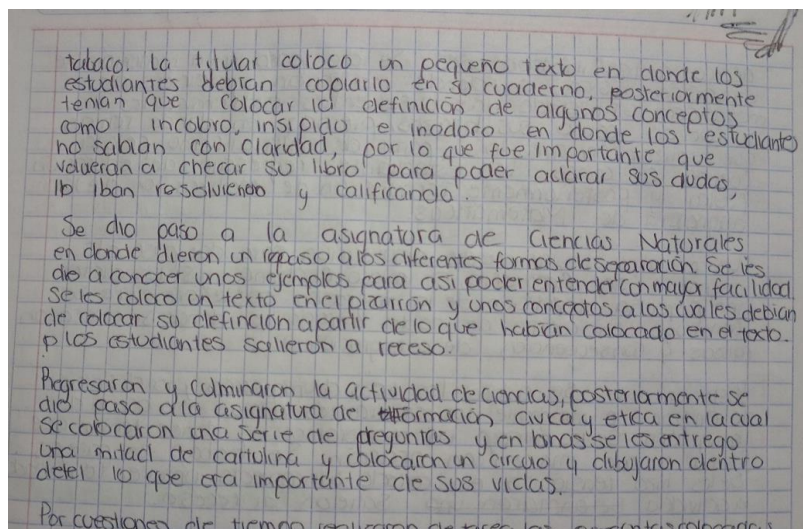 talaco. La titular coloco un pequeño texto en donde los
estudiantes debian copiarlo en su cuaderno, posteriormente
tenian que colocar la definición de algunos conceptos
como incoloro, insipido e inodoro en donde los estudiantes
no sabian con claridad, por lo que fue importante que
volvieran a checar su libro para poder aclarar sus dudas,
lo iban resolviendo y calificando.
Se dio paso a la asignatura de Ciencias Naturales
en donde dieron un repaso a los diferentes formas de separación. Se les
dio a conocer unos ejemplos para asi poder entender con mayor facilidad.
Se les coloco un texto en el pizarrón y unos conceptos a los cuales debian
de colocar su definción apartir de lo que habian colocado en el texto.
Los estudiantes salieron a receso.
Regresaron y culminaron la actividad de ciencias, posteriormente se
dio paso a la asignatura de formación civica y etica en la cual
se colocaron una serie de preguntas y se les entrego
una mitad de cartulina y colocaron un circulo y dibujaron dentro
detel lo que era importante de sus vidas.
Por cuestiones de tiempo